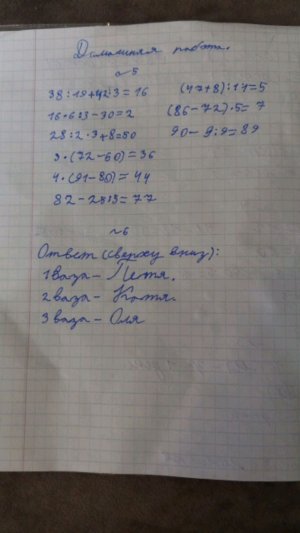 Домашняя работа.
№5
38:19+42:3=16
(47+8):11=5
16•6:3-30=2
(86-72)•5=7
28:2•3+8=50
90-9:9=89
3•(72-60)=36
4•(91-80)=44
82-25:5=77
№6
Ответ (сверху вниз):
1 ваза - Петя.
2 ваза - Катя.
3 ваза - Оля